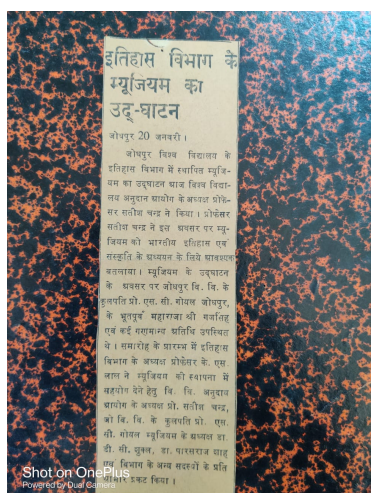 इतिहास विभाग के
म्यूजियम का
उद्-घाटन
जोधपुर 20 जनवरी ।
जोधपुर विश्व विद्यालय के
इतिहास विभाग में स्थापित म्यूजि-
यम का उद्घाटन आज विश्व विद्या-
लय अनुदान आयोग के अध्यक्ष प्रोफे-
सर सतीश चन्द्र ने किया । प्रोफेसर
सतीश चन्द्र ने इस अवसर पर म्यू-
जियम को भारतीय इतिहास एवं
संस्कृति के अध्ययन के लिये आवश्यक
बतलाया । म्यूजियम के उद्घाटन
के अवसर पर जोधपुर वि. वि. के
कुलपति प्रो. एस. सी. गोयल जोधपुर,
के भूतपूर्व महाराजा श्री गजसिंह
एवं कई गणमान्य अतिथि उपस्थित
थे । समारोह के प्रारम्भ में इतिहास
विभाग के अध्यक्ष प्रोफेसर के. एस.
लाल ने म्यूजियम की स्थापना में
सहयोग देने हेतु वि. वि. अनुदान
आयोग के अध्यक्ष प्रो. सतीश चन्द्र,
जो वि. वि. के कुलपति प्रो. एस.
सी. गोयल म्यूजियम के अध्यक्ष डा.
डी. सी. शुक्ल, डा. पारसराज शाह
एवं विभाग के अन्य सदस्यों के प्रति
आभार प्रकट किया ।
Shot on OnePlus
Powered by Dual Camera